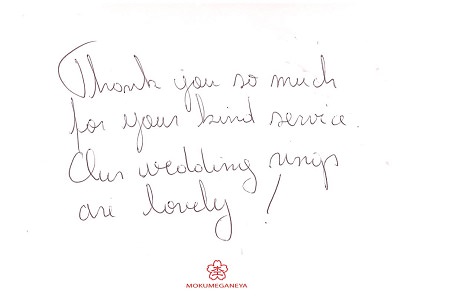 Thank you so much
for your kind service.
Our wedding rings
are lovely!
MOKUMEGANEYA